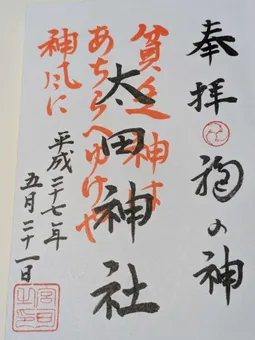 奉拝
福の神
貧乏神は
あちらへゆけや
神風に
太田神社
平成二十七年
五月二十一日
宮司之印